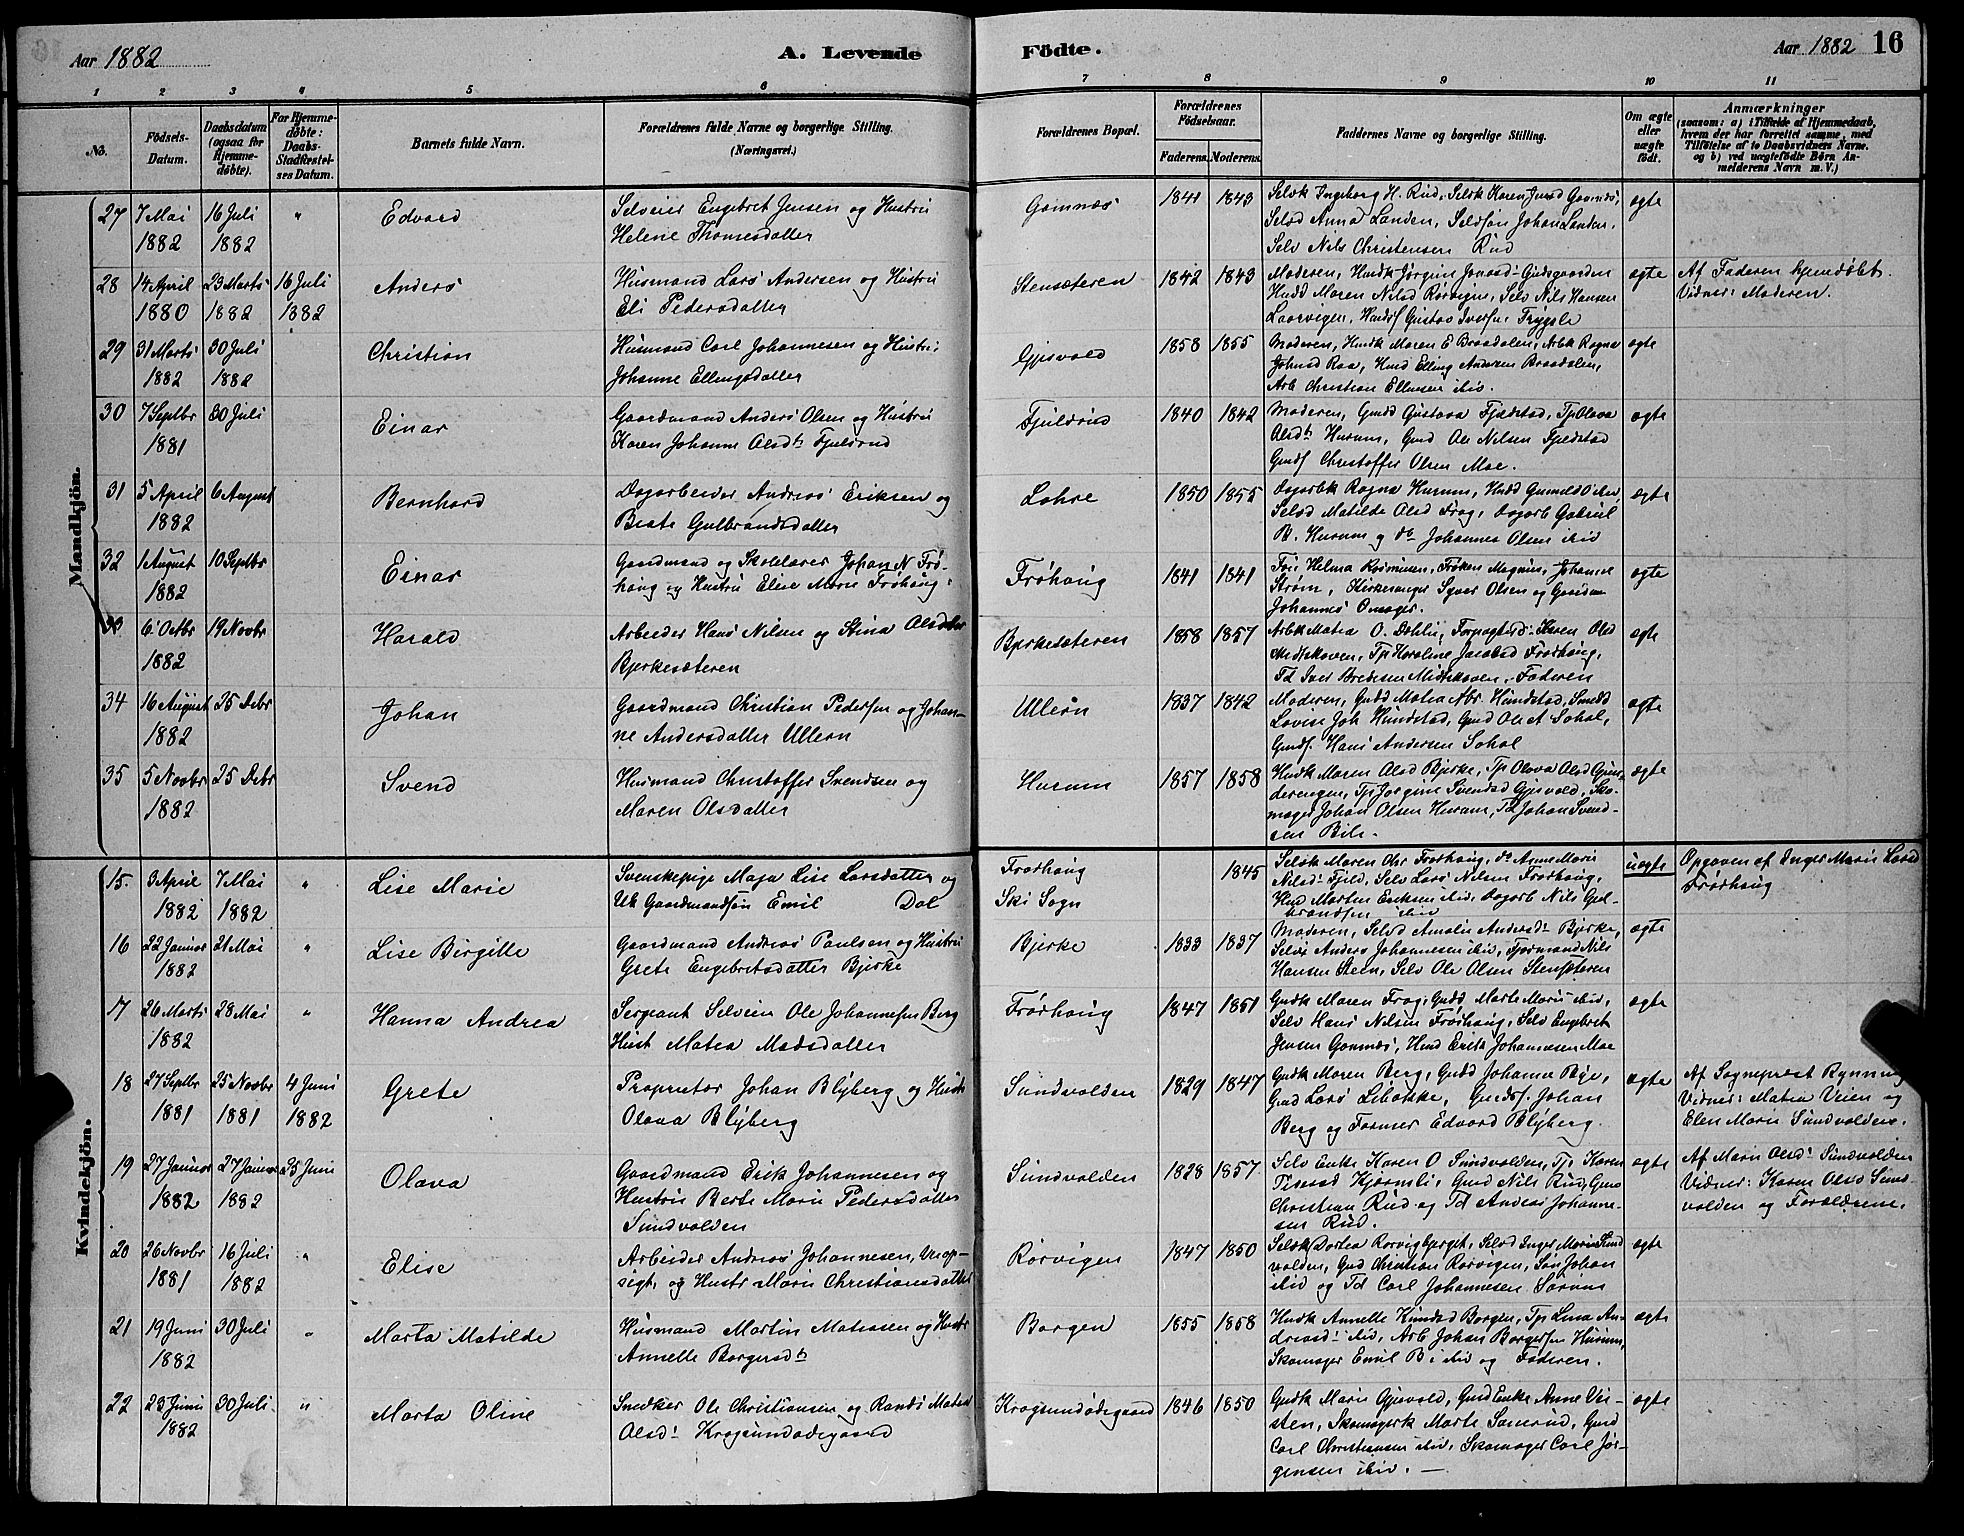 Aar 1882 A. Levende Födte. Aar 1882 16
1 2 3 4 5 6 7 8 9 10 11
No. Födsels-Datum. Daabsdatum (ogsaa for Hjemme-døbte). For Hjemme-døbte: Daabs-Stadfæstel-ses Datum. Barnets fulde Navn. Forældrenes fulde Navne og borgerlige Stilling. (Næringsvei.) Forældrenes Bopæl. Forældrenes Födselsaar. Faderens. Moderens. Faddernes Navne og borgerlige Stilling. Om ægte eller uægte födt. Anmærkninger (saasom: a) i Tilfælde af Hjemmedaab, hvem der har forrettet samme, med Tilföielse af to Daabsvidners Navne. og b) ved uægtefödte Börn An-melderens Navn m. V.)
Mandkjön.
27 7 Mai 1882 16 Juli 1882 " Edvard
Selveier Engebret Jensen og Hustru
Helene Thomesdatter
Gomnæs 1841 1843
Selv Nils Christensen Rud
ægte
28 14 April 1880 23 Marts 1882 16 Juli 1882 Anders
Husmand Lars Andersen og Hustru
Eli Pedersdatter
Stensæteren 1842 1843
Hudd Maren Nilsd Rørvigen, Selv Nils Hansen
ægte
Af Faderen hjemdøbt.
Vidner: Moderen.
29 31 Marts 1882 30 Juli 1882 Christian
Husmand Carl Johannesen og Hustru
Johanne Ellingsdatter
Gjesvold 1858 1855
Moderen, Husk Maren E Braadalen, Arbk Ragna
Johnsd Raa, Husd Elling Andersen Braadalen,
Arb Christian Ellensen ibid.
ægte
30 7 Septbr 1881 30 Juli Einar
Gaardmand Anders Olsen og Hustru
Karen Johanne Olsdtr Fjulsrud
Fjulsrud 1840 1842
Moderen, Gmdd Gustava Fjeldstad, Tp Olava
Olsdtr Hurum, Gmd Ole Nilsen Fjeldstad
Gmds Christoffer Olsen Moe.
ægte
31 5 April 1882 6 August Bernhard
Dagarbeider Andreas Eriksen og
Beate Gulbrandsdatter
Lohre 1850 1855
Selvd Matilde Olsd Frog, Dagarb Gabriel
B. Hurum og do Johannes Olsen ibid
ægte
32 1 August 1882 10 Septbr Einar
Gaardmand og Skolelærer Johan N Frø-
haug og Hustru Elise Marie Frøhaug.
Frøhaug 1841 1841
Strøm, Kirkesanger Syver Olsen og
Johannes
ægte
33 6 Octbr 1882 19 Novbr Harald
Arbeider Hans Nilsen og Stina Olsdatter
Bjerkesæteren
Bjerkesæteren 1858 1857
Faderen
ægte
34 16 August 1882 25 Debr Johan
Gaardmand Christian Pedersen og Johan-
ne Andersdatter Ullern
Ullern 1837 1842
Moderen, Gmdd Matea Abr. Hundstad, Smdd
Lovise Joh Hundstad, Gmd Ole A Sohol,
Gmds. Hans Andersen Sohol
ægte
35 5 Novbr 1882 25 Debr Svend
Husmand Christoffer Svendsen og
Maren Olsdatter
Hurum 1857 1858
Husk Maren Olsd Bjerke, Tp Olava Olsd Gjen-
derengen, Tp Jørgine Svendsd Gjesvold, Sko-
mager Johan Olsen Hurum, Td Johan Svend-
sen Bili.
ægte
Kvindekjön.
15. 3 April 1882 7 Mai 1882 " Lise Marie
Svenskepige Maja Lise Larsdatter og
Uk Gaardmandsøn Emil Dal
Frøshaug
Ski Sogn
1845
Selvk Maren Chr Frøshaug, do Anne Marie
Nilsd. Fjeld, Selv Lars Nilsen Frøshaug,
Husd Morten Eriksen ibid, Dagarb Nils Gul-
brandsen ibid
uægte
Opgaven af Inger Marie Larsd
Frøshaug
16 22 Januar 1882 21 Mai " Lise Birgitte
Gaardmand Andreas Paulsen og Hustru
Grete Engebretsdatter Bjerke
Bjerke 1833 1837
Moderen, Selvd Amalie Andersd. Bjerke,
Selvs Anders Johannesen ibid,
Hansen Steen, Selv Ole Olsen Stensæteren
ægte
17 26 Marts 1882 28 Mai " Hanna Andrea
Sergeant Selveier Ole Johannesen Berg
Hust Matea Madsdatter
Frøshaug 1847 1851
Gmdk Maren Frog, Gmdd Marte Marie ibid,
Selv Hans Nilsen Frøshaug, Selv Engebret
Jensen Gomnæs, Husd Erik Johannesen Moe
ægte
18 27 Septbr 1881 25 Novbr 1881 4 Juni 1882 Grete
Proprietær Johan Blyberg og Hustr
Olava Blyberg
Sundvolden 1829 1847
Gmdk Maren Berg, Gmdd Johanne Bye,
Gmd Lars Libakke, Gmdsf. Johan
Berg og Farmer Edvard Blyberg.
ægte
Af Sogneprest Rynning
Vidner: Matea Veien og
Elen Marie Sundvolden.
19 27 Januar 1882 27 Januar 1882 25 Juni Olava
Gaardmand Erik Johannesen og
Hustru Berte Marie Pedersdatter
Sundvolden
Sundvolden 1828 1857
Selv Enke Karen O Sundvolden, Tp Karen
Christian Rud og Td Andreas Johanne-
sen Rud.
ægte
Af Marie Olsd. Sundvolden
Vidner: Karen Olsd Sund-
volden og Forældrene.
20 26 Novbr 1881 16 Juli 1882 " Elise
Arbeider Andreas Johannesen, Veiop-
sigt, og Hustr Marie Christiansdatter
Rørvigen 1847 1850
Selvk Dortea Rørvigberget, Selvd Inger Marie Sund
volden, Gmd Christian Rørvigen, Søn Johan
ibid og Td Carl Johannesen Sørum
ægte
21 19 Juni 1882 30 Juli " Marta Matilde
Husmand Martin Matiasen og Hustr
Annette Borgersdtr
Borgen 1855 1858
Husk Annette Knudsd Borgen, Tp Lina An-
dreasd. ibid, Arb Johan Borgersen Hurum,
Skomager Emil B. ibid og Faderen.
ægte
22 23 Juni 1882 30 Juli " Marta Oline
Snedker Ole Christiansen og Randi Matea
Olsd. Krogsundødegaard
Krogsundødegaard 1846 1850
Gmdk Marie Gjesvold, Gmd Enke Anne Vei-
sten, Skomagerk Marte Samrud, Gmd
Carl Christiansen ibid, Skomager Carl Jør-
gensen ibid.
ægte